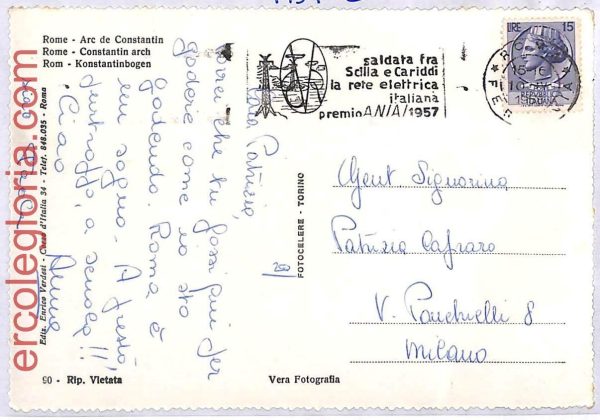 Rome - Arc de Constantin
Rome - Constantin arch
Rom - Konstantinbogen
saldata fra
Scilla e Cariddi
la rete elettrica
italiana
premio ANIAI 1957
LIRE 15
ROMA
FERROVIA
REPUBBLICA
ITALIANA
Cara Patrizia,
vorrei che tu fossi qui per
godere come io sto
godendo. Roma è
un sogno. A presto,
a scuola!!
Ciao
Gent Signorina
Patrizia Cafraro
V. Ponchielli 8
Milano
FOTOCELERE - TORINO
Ediz. Enrico Verdesi - Corso d'Italia 34 - Telef. 848.035 - Roma
90 - Rip. Vietata
Vera Fotografia
ercolegloria.com